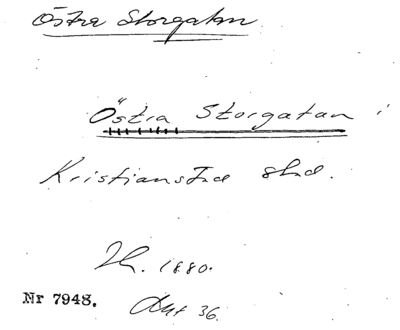 Östra Storgatan
Östra Storgatan i
Kristianstad stad.
1880.
Nr 7948.
Akt 36.